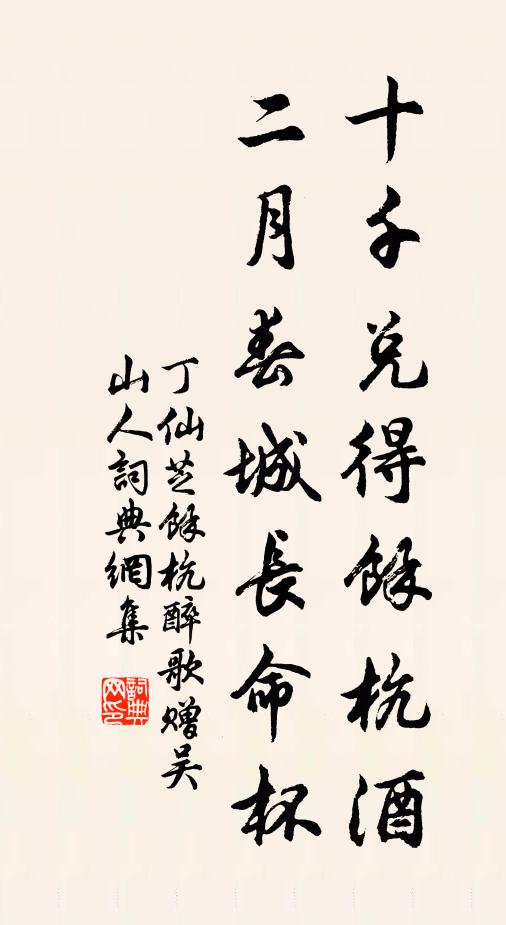 十千兑得餘杭酒
二月春城長命杯
丁仙芝餘杭醉歌贈吴
山人詞典網集
詞典
网印